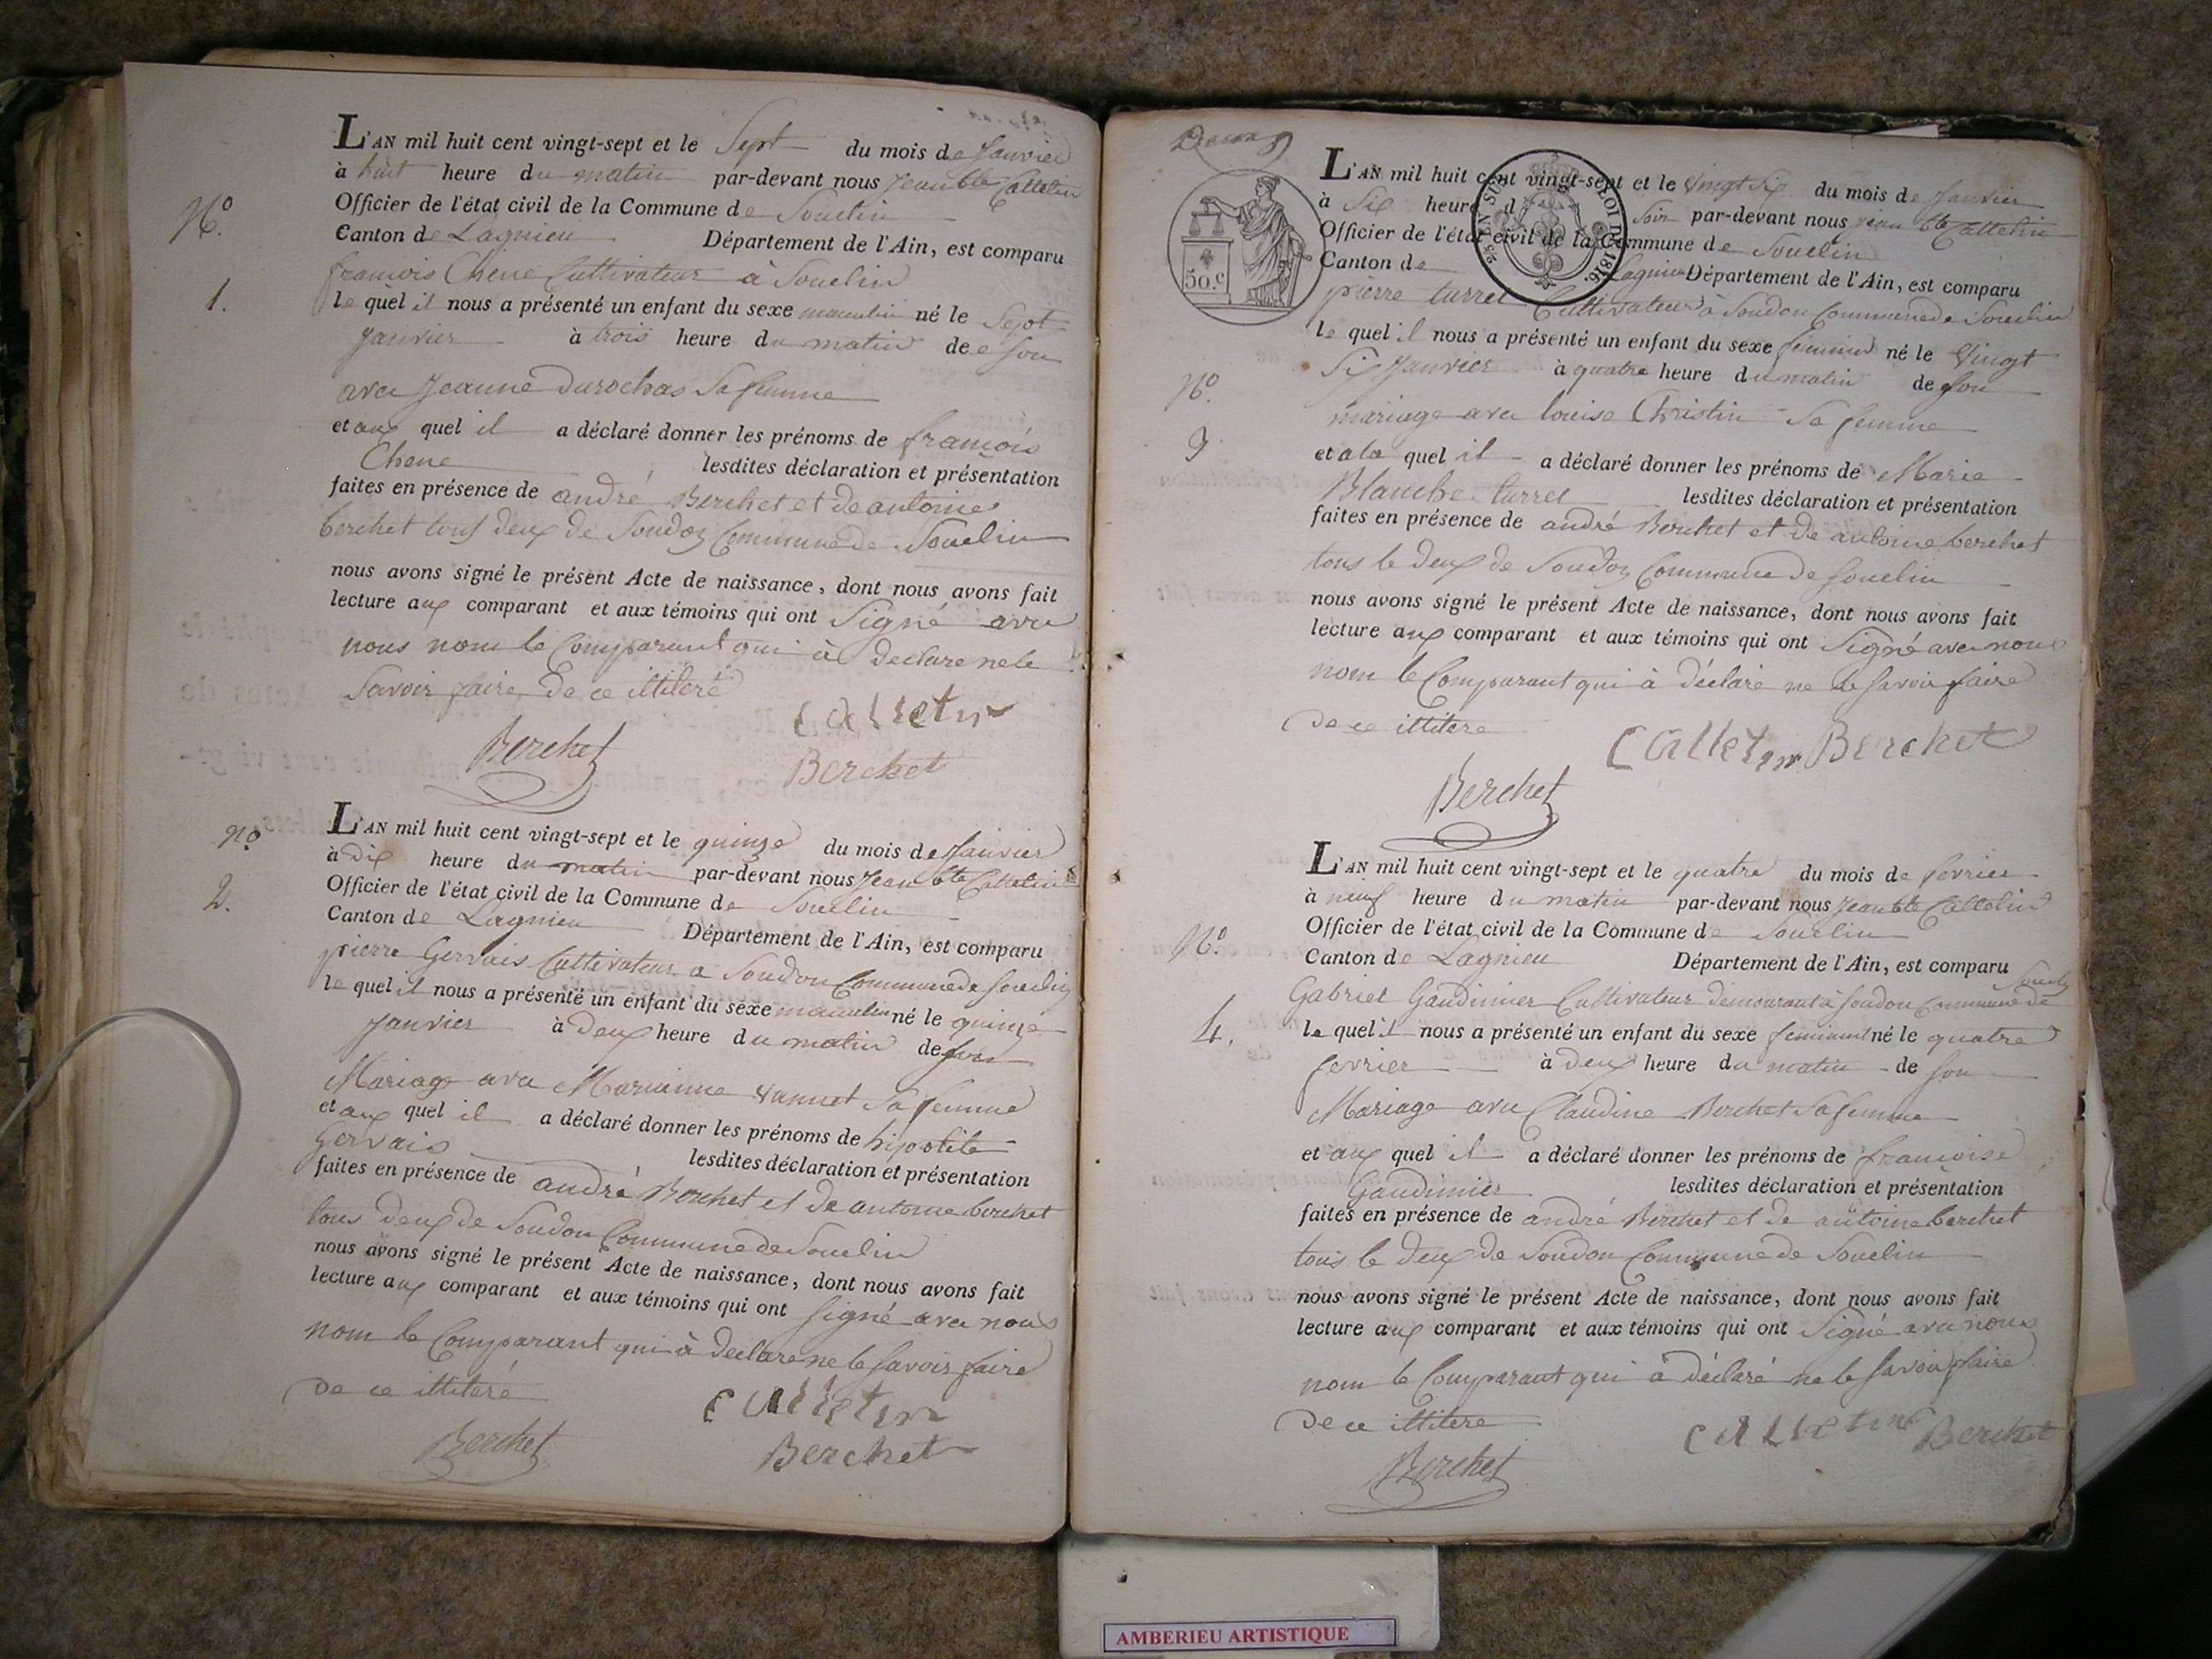 L'AN mil huit cent vingt-sept et le Sept du mois de Janvier
à huit heure du matin par-devant nous Jean bte Cattelin
Officier de l'état civil de la Commune de Souclin
Nº.
Canton de Lagnieu Département de l'Ain, est comparu
francois Chene Cultivateur à Souclin
1.
le quel il nous a présenté un enfant du sexe masculin né le Sept
Janvier à trois heure du matin de son
avec Jeanne durochas Sa femme
et aux quel il a déclaré donner les prénoms de francois
Chene lesdites déclaration et présentation
faites en présence de andré Berchet et de antoine
berchet tous deux de Soudon Commune de Souclin
nous avons signé le présent Acte de naissance, dont nous avons fait
lecture aux comparant et aux témoins qui ont Signé avec
nous nom le Comparant qui à declare ne le
Savoir faire de ce illiteré
Cattetin
Berchet
Berchet
nº
L'AN mil huit cent vingt-sept et le quinze du mois de Janvier
à dix heure du matin par-devant nous Jean bte Cattelin
2.
Officier de l'état civil de la Commune de Souclin
Canton de Lagnieu Département de l'Ain, est comparu
pierre Gervais Cultivateur a Soudon Commune de Souclin
le quel il nous a présenté un enfant du sexe masculin né le quinze
Janvier à deux heure du matin de son
Mariage avec Marianne vannet Sa femme
et aux quel il a déclaré donner les prénoms de hipolite
Gervais lesdites déclaration et présentation
faites en présence de andré Berchet et de antoine berchet
tous deux de Soudon Commune de Souclin
nous avons signé le présent Acte de naissance, dont nous avons fait
lecture aux comparant et aux témoins qui ont signé avec nous
nom le Comparant qui à declare ne le Savoir faire
de ce illiteré
Cattetin
Berchet
Berchet
50.C
LOI DE 1816.
L'AN mil huit cent vingt-sept et le vingt Six du mois de Janvier
à Six heure du Soir par-devant nous jean bte Cattelin
Officier de l'état civil de la Commune de Souclin
Canton de Lagnieu Département de l'Ain, est comparu
pierre turrel Cultivateur à Soudon Commune de Souclin
le quel il nous a présenté un enfant du sexe feminin né le Vingt
Six Janvier à quatre heure du matin de Son
Nº.
mariage avec louise Christin Sa femme
3
et a la quel il a déclaré donner les prénoms de Marie
Blanche turrel lesdites déclaration et présentation
faites en présence de andré Berchet et de antoine berchet
tous le deux de Soudon Commune de Souclin
nous avons signé le présent Acte de naissance, dont nous avons fait
lecture aux comparant et aux témoins qui ont Signé avec nous
nom le Comparant qui à déclaré ne le Savoir faire
de ce illitere
Cattetin Berchet
Berchet
L'AN mil huit cent vingt-sept et le quatre du mois de fevrier
à neuf heure du matin par-devant nous Jean bte Cattelin
Officier de l'état civil de la Commune de Souclin
Nº.
Canton de Lagnieu Département de l'Ain, est comparu
Gabriel Gaudinier Cultivateur demeurant à Soudon Commune de Souclin
4.
le quel il nous a présenté un enfant du sexe feminint né le quatre
fevrier à deux heure du matin de son
Mariage avec Claudine Berchet Sa femme
et aux quel il a déclaré donner les prénoms de francoise
Gaudinier lesdites déclaration et présentation
faites en présence de andré Berchet et de antoine berchet
tous le deux de Soudon Commune de Souclin
nous avons signé le présent Acte de naissance, dont nous avons fait
lecture aux comparant et aux témoins qui ont Signé avec nous
nom le Comparant qui à déclaré ne le Savoir faire
de ce illitere
Cattetin Berchet
Berchet
AMBERIEU ARTISTIQUE